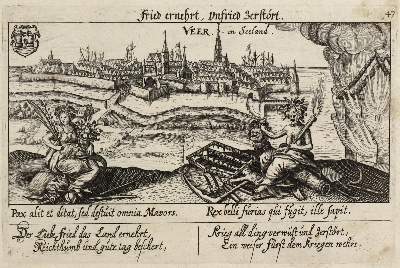 Fried ernehrt, Vnfried Zerstört.
47
VEER. in Seeland.
Pax alit et ditat, sed destruit omnia Mavors. Rex belli furias qui fugit, ille sapit.
Der Liebe fried das Land ernehrt,
Reichthumb und gute tag beschert,
Krieg all ding verwüst und Zerstört,
Ein weiser fürst dem Kriegen wehrt.